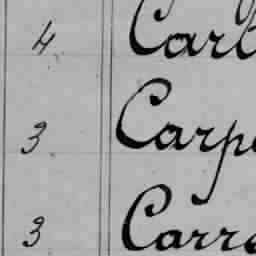 4 Carl
3 Carpe
3 Carre